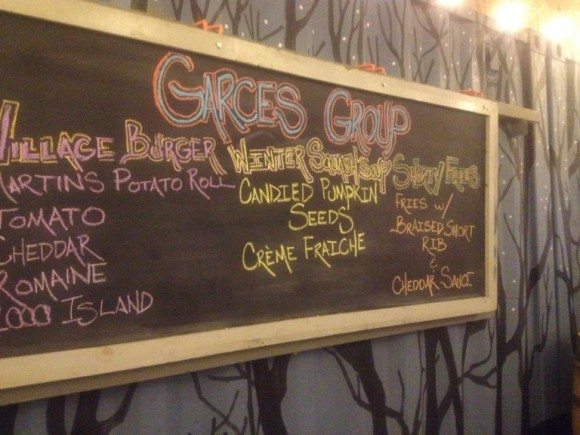 GARCES GROUP
VILLAGE BURGER
MARTINS POTATO ROLL
TOMATO
CHEDDAR
ROMAINE
1000 ISLAND
WINTER SQUASH SOUP
CANDIED PUMPKIN
SEEDS
CRÈME FRAICHE
SHORTY FRIES
FRIES W/
BRAISED SHORT
RIB
&
CHEDDAR SAUCE